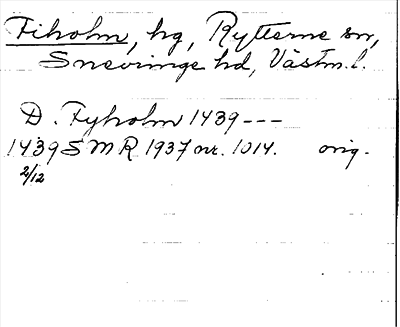 Fiholm, hg, Rytterne sn,
Snevringe hd, Västm. l.
D. Fyholm 1439---
1439 S M R 1937 nr. 1014. orig.
2/12